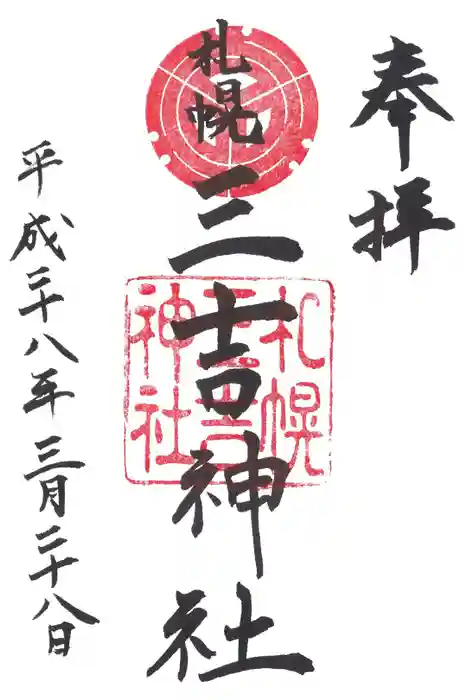 奉拝
札幌
三吉神社
札幌
三吉
神社
平成二十八年三月二十八日